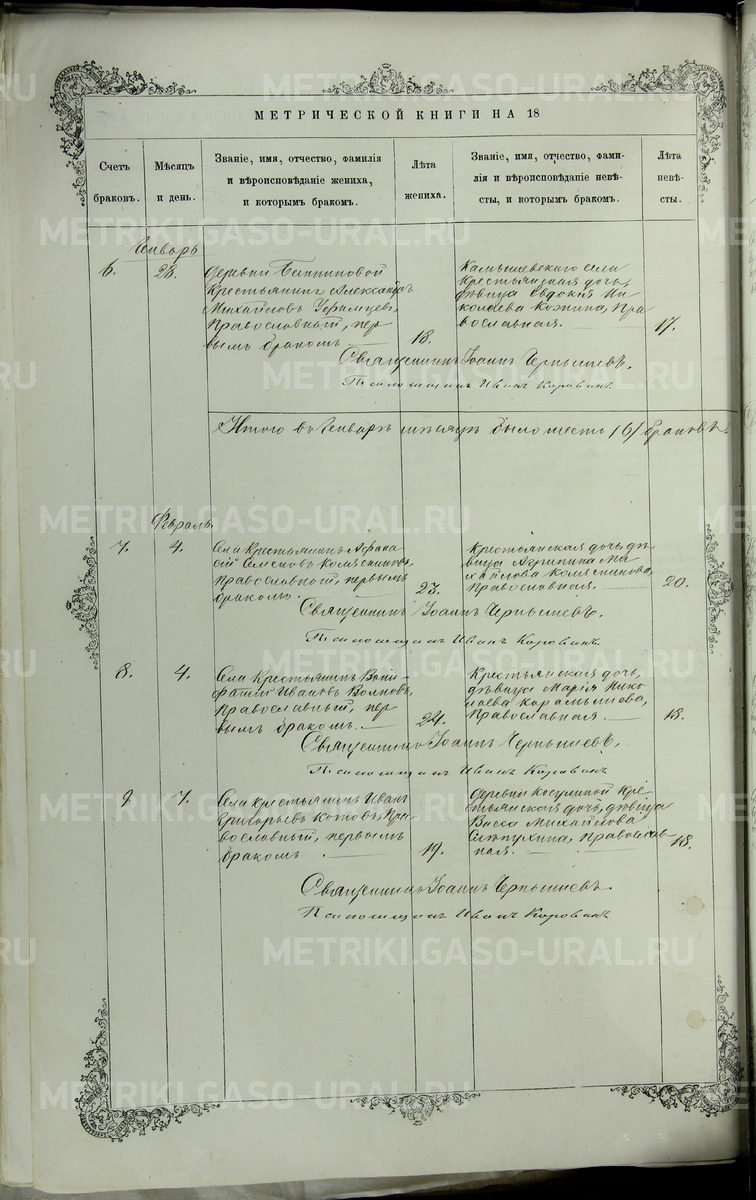 МЕТРИЧЕСКОЙ КНИГИ НА 18
Счетъ
браковъ.
Мѣсяцъ
и день.
Званіе, имя, отчество, фамилія
и вѣроисповѣданіе жениха,
и которымъ бракомъ.
Лѣта
жениха.
Званіе, имя, отчество, фами-
лія и вѣроисповѣданіе невѣ-
сты, и которымъ бракомъ.
Лѣта
невѣ-
сты.
Генварь
6.
28.
Деревни
Крестьянинъ Александръ
Михайловъ Уфимцевъ,
Православный, пер
вымъ бракомъ
18.
Камышевскаго села
Крестьянская дочь,
дѣвица Евдокія Ни
колаева Кожина, Пра
вославная.
17.
Священникъ Іоаннъ Чернышевъ.
Псаломщикъ Иванъ Коровинъ
Итого въ Генварѣ мѣсяцѣ было шесть /6/ браковъ.
Февраль.
7.
4.
Села Крестьянинъ Афана
сій Семеновъ Колясниковъ,
Православный, первымъ
бракомъ.
23.
Крестьянская дочь, дѣ
вица Агрипина Ми
хайлова Колясникова,
Православная.
20.
Священникъ Іоаннъ Чернышевъ.
Псаломщикъ Иванъ Коровинъ.
8.
4.
Села Крестьянинъ Вони-
фатій Ивановъ Волковъ,
Православный, пер
вымъ бракомъ.
24.
Крестьянская дочь,
дѣвица Марія Нико
лаева Карамышова,
Православная.
18.
Священникъ Іоаннъ Чернышевъ.
Псаломщикъ Иванъ Коровинъ
9
7.
Села Крестьянинъ Иванъ
Григорьевъ Котовъ, Пра
вославный, первымъ
бракомъ.
19.
Деревни Косулиной Кре
стьянская дочь, дѣвица
Васса Михайлова
Православ
ная.
18.
Священникъ Іоаннъ Чернышевъ.
Псаломщикъ Иванъ Коровинъ
METRIKI.GASO-URAL.RU